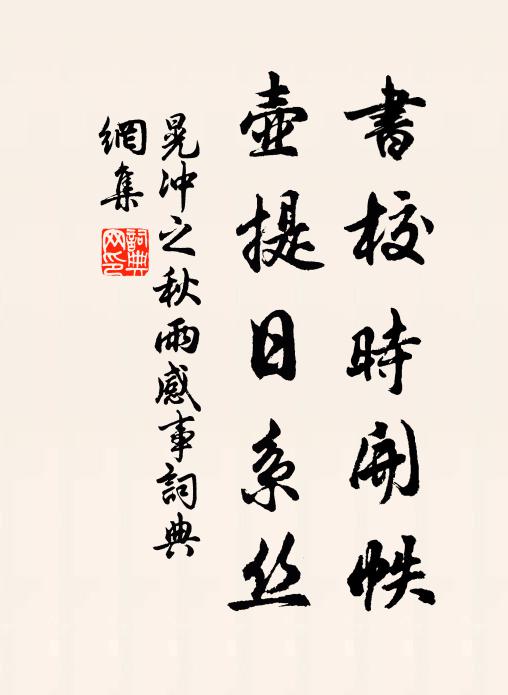 書校時開帙
壺提日系丝
晁沖之秋雨感事詞典
網集
詞典
网印